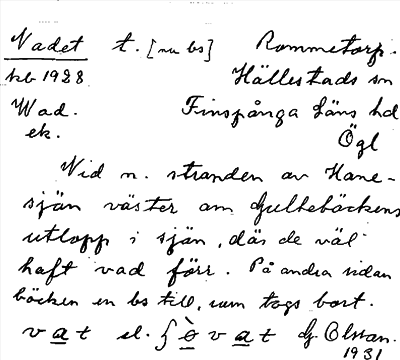 Vadet t. [nu bs] Rommetorp.
kb 1928 Hällestads sn
Wad. Finspånga läns hd
ek. Ögl
Vid n. stranden av Hane-
sjön väster om Gultebäckens
utlopp i sjön, där de väl
haft vad förr. På andra sidan
bäcken en bs till, som togs bort.
vat el. ʃòvat G. Olsson.
1931